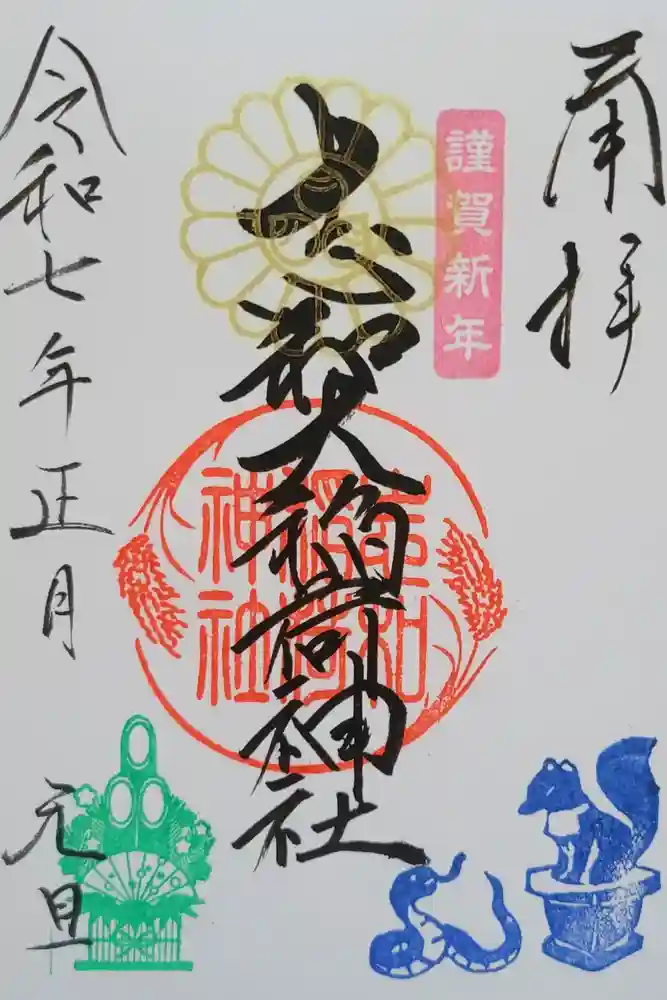 奉拝
謹賀新年
大稲荷神社
稲荷
神社
令和七年正月
元旦